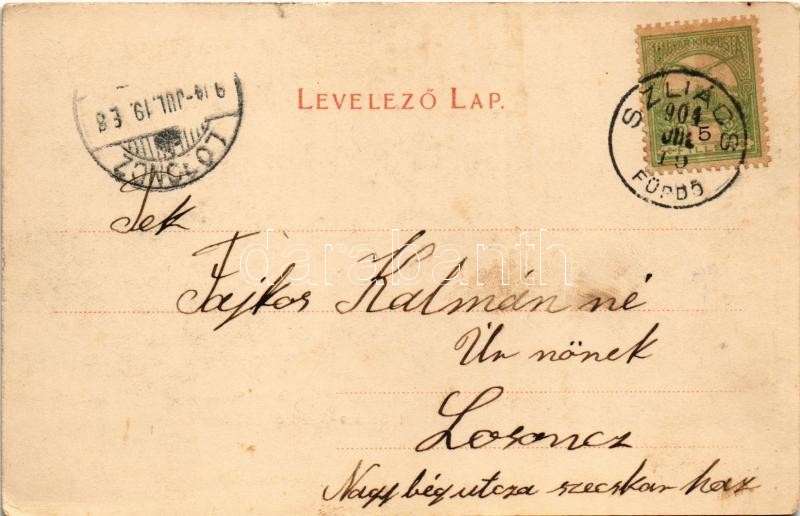 LEVELEZŐ LAP.
MAGYAR KIR. POSTA
5
SZLIÁCS
904
JUL
19
FÜRDŐ
914-JUL.19. E8
LOSONCZ
Tek
Fajkos Kálmán né
Úr nőnek
Losoncz
Nagybég utcza szecskar haz
darabanth